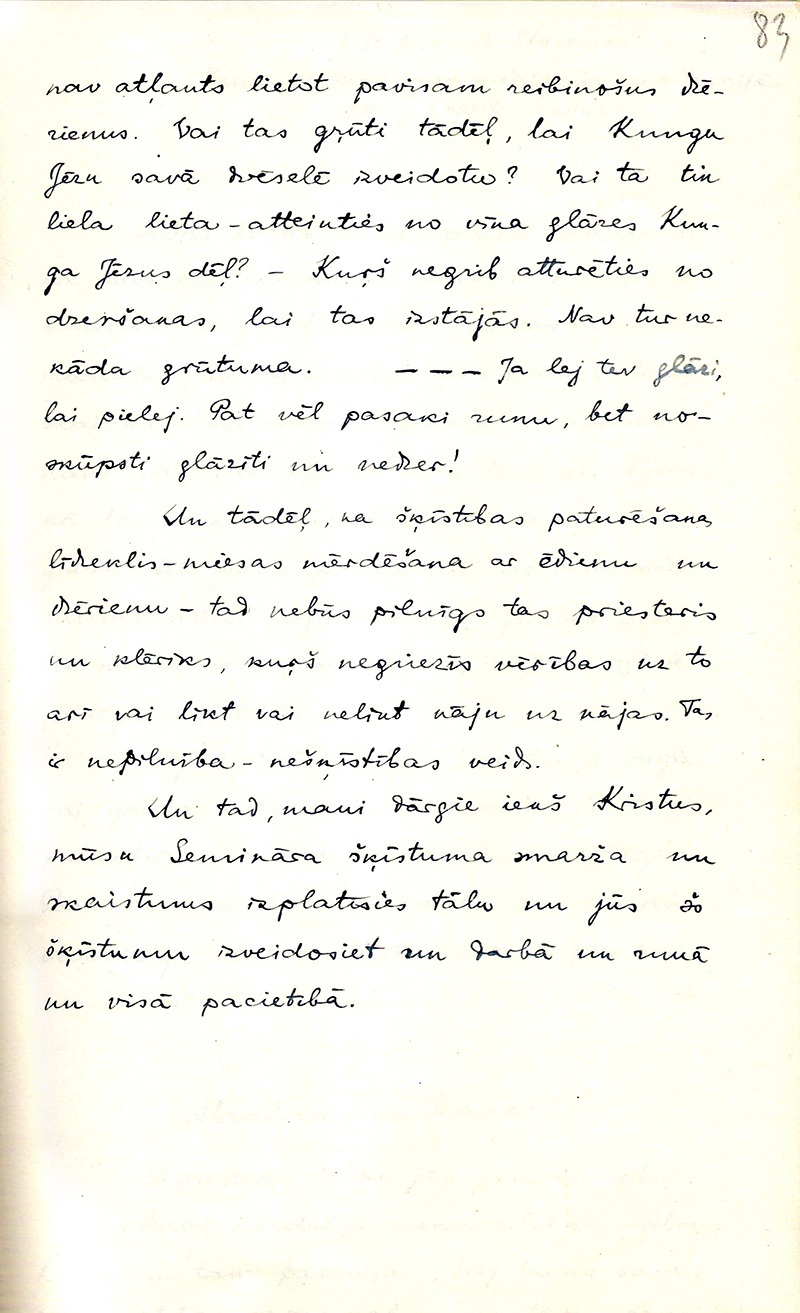 83
nav atļauts lietot pavisam reibinošus dzē-
rienus. Vai tas grūti tādēļ, lai Kungu
Jēzu savā dvēselē izveidotu? Vai ta tik
liela lieta - atteikties no vīna glāzes Kun-
ga Jēzus dēļ? - Kuŗš negrib atturēties no
dzeršanas, lai tas izstājās. Nav tur ne-
kāda grūtuma. - - - Ja lej tev glāzi,
lai pielej. Pat vēl pasaki runu, bet no-
skūpsti glāzīti un nedzer!
Un tādēļ, ka šķīstības paturēšanas
līdzeklis - miesas mērdēšana ar ēdienu un
dzērienu - tad nebūs pilnīgs tas priesteris
un klēriks, kuŗš negriezīs vērības uz to
arī vai likt vai nelikt kāju uz kājas. Tas
ir nepilnība - nešķīstības veids.
Un tad, mani dārgie iekš Kristus,
mūsu Semināra šķīstuma smarža un
skaistums izplatīsies tālu un jūs šo
šķīstumu izveidosiet un darbā un runā
un visā pacietībā.